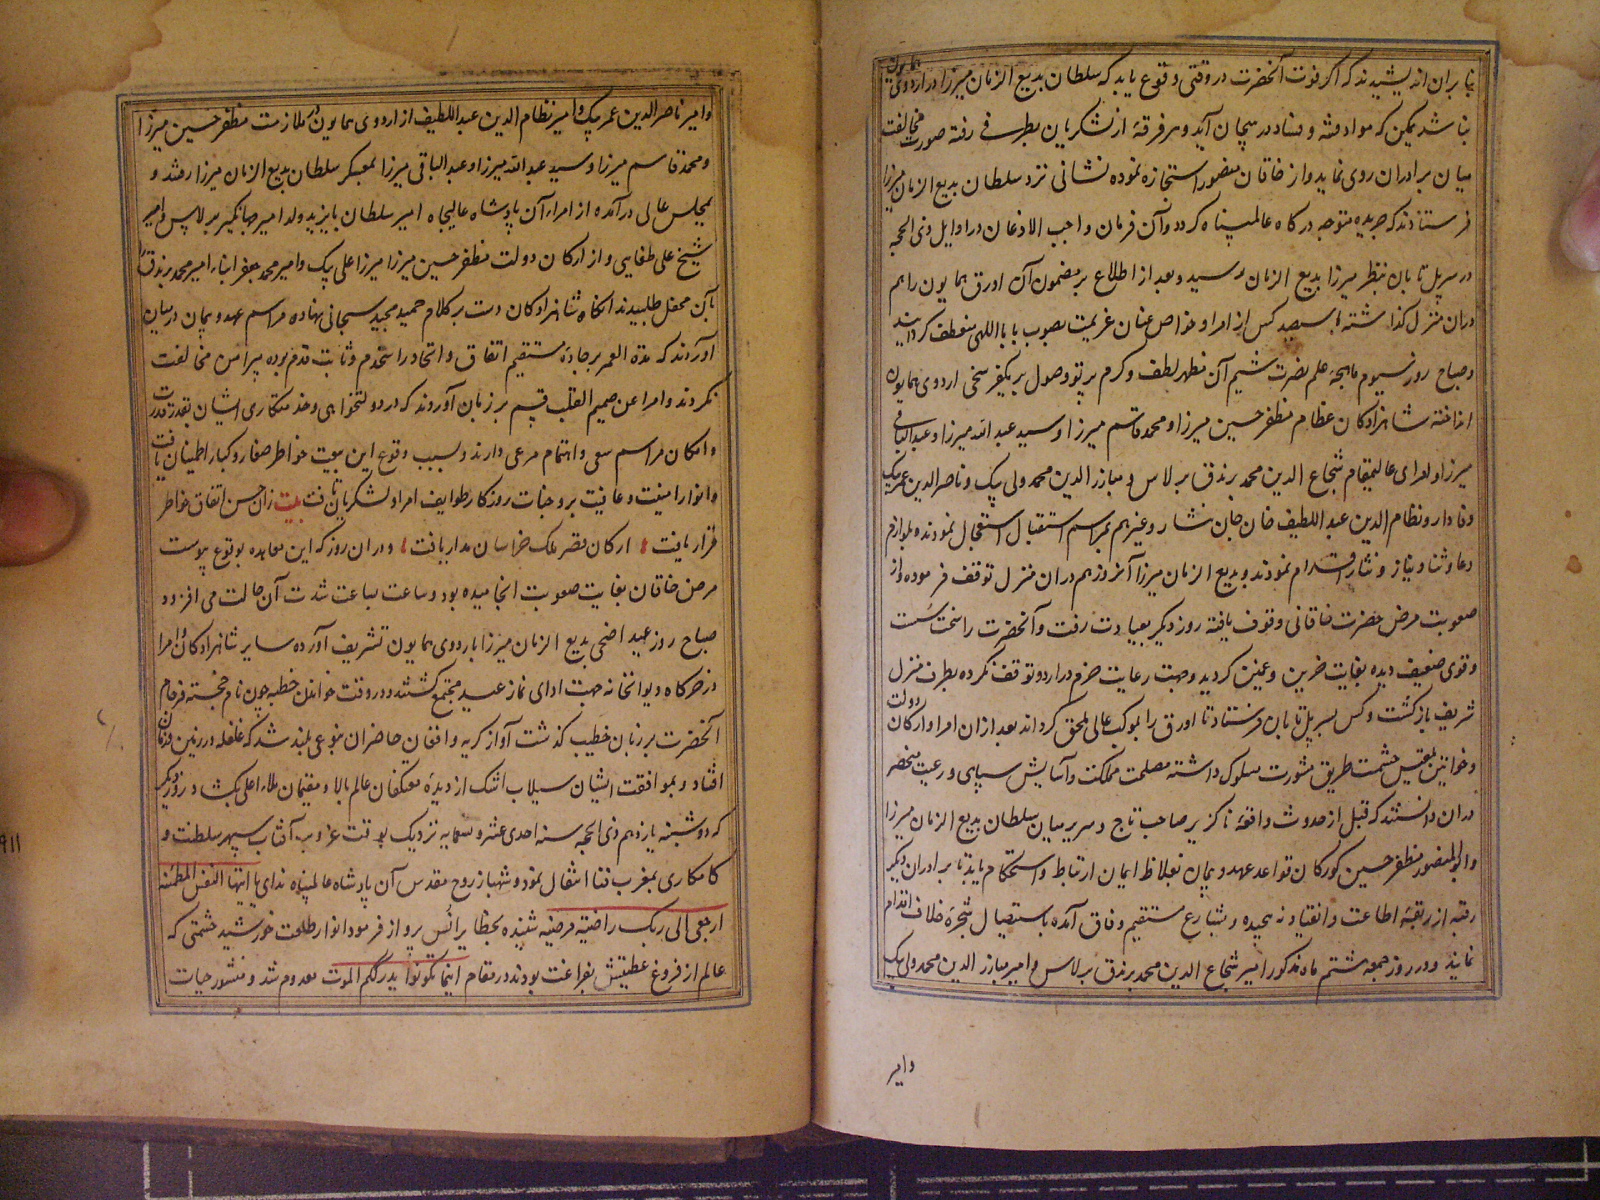 بنابران اندیشیدند که اگر فوت آنحضرت در وقتی وقوع یابد که سلطان بدیع الزمان میرزا در اردوی همایون
نباشد یمکن که مواد فتنه و فساد در هیجان آید و هر فرقهٔ از لشکریان بطرفی رفته صورت مخالفت
میان برادران روی نماید و از خاقان منصور استجازه نموده نشانی نزد سلطان بدیع الزمان میرزا
فرستادند که جریده متوجه درگاه عالمپناه گردد و آن فرمان واجب الاذعان در اوایل ذی الحجه
در سرپل تابان بنظر میرزا بدیع الزمان رسید و بعد از اطلاع بر مضمون آن اورق همایون را هم
دران منزل گذاشته با سیصد کس از امرا و خواص عنان عزیمت بصوب بابا اللهی منعطف گردانید
و صباح روز سیوم ماهچهٔ علم نصرت شیم آن مظهر لطف و کرم پرتو وصول بر یکفرسخی اردوی همایون
انداخته شاهزادگان عظام مظفر حسین میرزا و محمد قاسم میرزا و سید عبدالله میرزا و عبدالباقی
میرزا و امرای عالیمقام شجاع الدین محمد برندق برلاس و مبارز الدین محمد ولی بیک و ناصر الدین عمر بیک
وفادار و نظام الدین عبداللطیف خان جان نثار و غیرهم بمراسم استقبال استعجال نمودند و بلوازم
دعا و ثنا و نیاز و نثار اقدام نمودند و بدیع الزمان میرزا آنروز هم دران منزل توقف فرموده و از
صعوبت مرض حضرت خاقانی وقوف یافته روز دیگر بعیادت رفت و آنحضرت را سخت سست
و قوی ضعیف دیده بغایت حزین و غمین گردید و جهت رعایت حزم در اردو توقف نکرده بطرف منزل
شریف بازگشت و کس بسرپل تابان فرستاد تا اورق را بموکب عالی ملحق گرداند بعد ازان امرا و ارکان دولت
و خواتین بلقیس حشمت طریق مشورت مسلوک داشته مصلحت مملکت و آسایش سپاهی و رعیت منحصر
دران دانستند که قبل از حدوث واقعهٔ ناگزیر صاحب تاج و سریر میان سلطان بدیع الزمان میرزا
و ابوالمنصور مظفر حسین کورکان قواعد عهد و پیمان بغلاظ ایمان ارتباط و استحکام یابد تا برادران دیگر
رقبه از ربقهٔ اطاعت و انقیاد نه پیچیده و بشارع مستقیم وفاق آمده باستیصال شجرهٔ خلاف اقدام
نمایند و در روز جمعه هشتم ماه مذکور امیر شجاع الدین محمد برندق برلاس و امیر مبارز الدین محمد ولی بیک
و امیر
و امیر ناصر الدین عمر بیک و امیر نظام الدین عبداللطیف از اردوی همایون بملازمت مظفر حسین میرزا
و محمد قاسم میرزا و سید عبدالله میرزا و عبدالباقی میرزا بمعسکر سلطان بدیع الزمان میرزا رفتند و
بمجلس عالی درآمده از امراء آن پادشاه عالیجاه امیر سلطان بایزید ولد امیر جهانگیر برلاس و امیر
شیخ علی طغایی و از ارکان دولت مظفر حسین میرزا میرزا علی بیک و امیر محمد جعفر ابناء امیر محمد برندق
بآن محفل طلبیدند آنگاه شاهزادگان دست بر کلام حمید مجید سبحانی نهاده مراسم عهد و پیمان در میان
آوردند که مدة العمر بر جادهٔ مستقیم اتفاق و اتحاد راسخ دم و ثابت قدم بوده پیرامن مخالفت
نگردند و امرا عن صمیم القلب قسم بر زبان آوردند که در دولتخواهی و خدمتکاری ایشان بقدر قدرت
و امکان مراسم سعی و اهتمام مرعی دارند و بسبب وقوع این بیعت خواطر صغار و کبار اطمینان یافت
و انوار امنیت و عافیت بر وجنات روزگار طوایف امرا و لشکریان تافت بیت زان حسن اتفاق خواطر
قرار یافت ارکان قصر ملک خراسان مدار یافت و دران روز که این معاهده بوقوع پیوست
مرض خاقان بغایت صعوبت انجامیده بود و ساعت بساعت شدت آن حالت می افزود
صباح روز عید اضحی بدیع الزمان میرزا باردوی همایون تشریف آورده سایر شاهزادگان و امرا
در خرکاه دیوانخانه جهت ادای نماز عید مجتمع گشتند و در وقت خواندن خطبه چون نام خجسته فرجام
آنحضرت بر زبان خطیب گذشت آواز گریه و افغان حاضران بنوعی بلند شد که غلغله در زمین و زمان
افتاد و بموافقت ایشان سیلاب اشک از دیدهٔ معتکفان عالم بالا و مقیمان ملاء اعلی بکشاد و روز دیگر
که دوشنبه یازدهم ذی الحجه سنه احدی عشر و تسعمایه نزدیک بوقت غروب آفتاب سپهر سلطنت و
۹۱۱
کامکاری بمغرب فنا انتقال نمود و شهباز روح مقدس آن پادشاه عالمپناه ندای یا ایتها النفس المطمئنه
ارجعی الی ربک راضیة مرضیة شنیده بحظایر انس پرواز فرمود انوار طلعت خورشید حشمتی که
عالم از فروغ عطیتش بفراغت بودند در مقام اینما تکونوا یدرککم الموت معدوم شد و منشور حیات